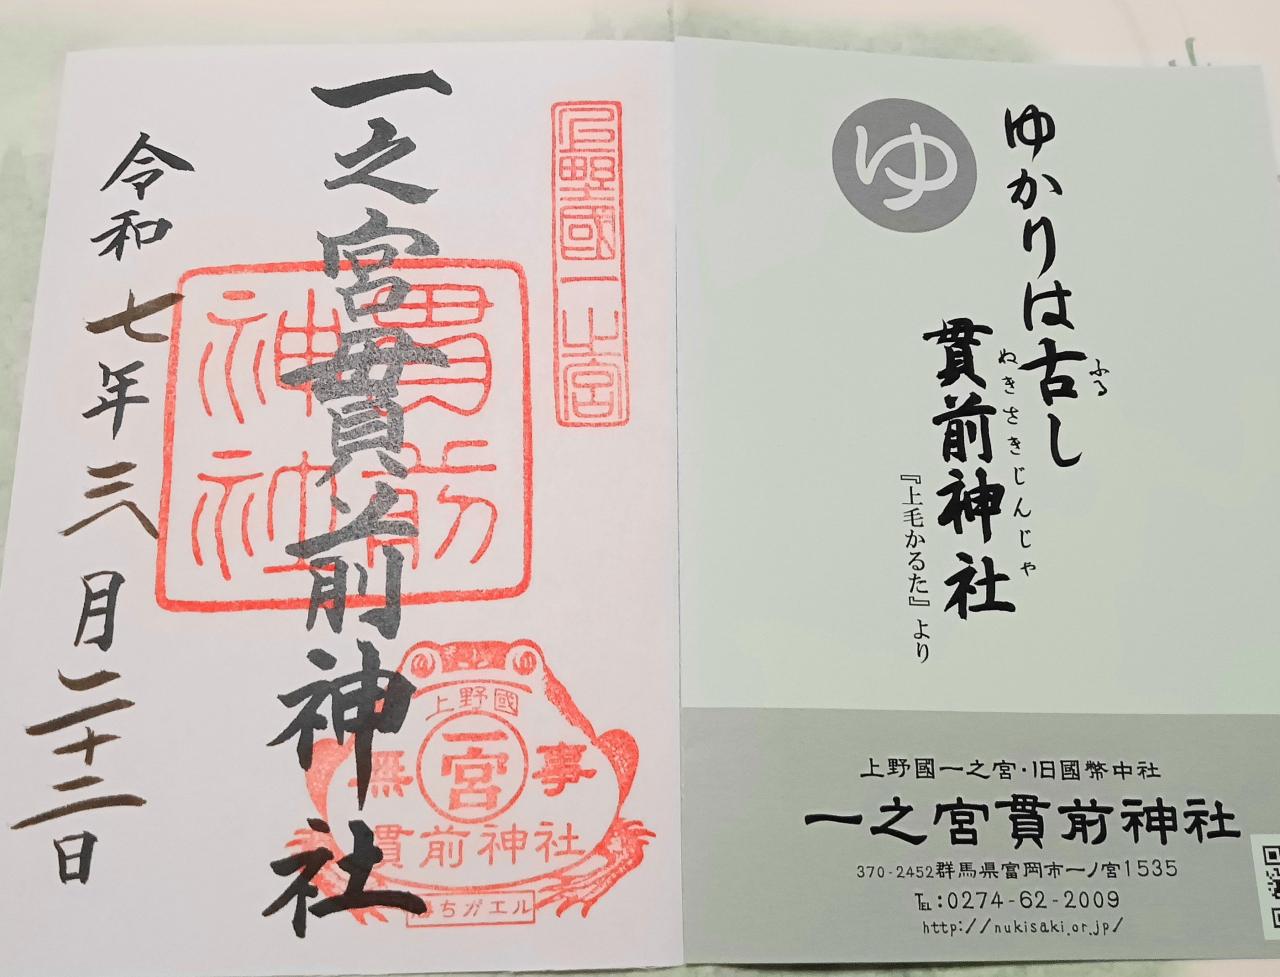 ゆ
ゆかりは古し
ふる
貫前神社
ぬきさきじんじゃ
『上毛かるた』より
上野國一之宮・旧國幣中社
一之宮貫前神社
370-2452群馬県富岡市一ノ宮1535
℡:0274-62-2009
http://nukisaki.or.jp/
上野國一之宮
一之宮貫前神社
貫前
神社
上野國
無一宮事
貫前神社
勝ちガエル
令和七年三月二十二日